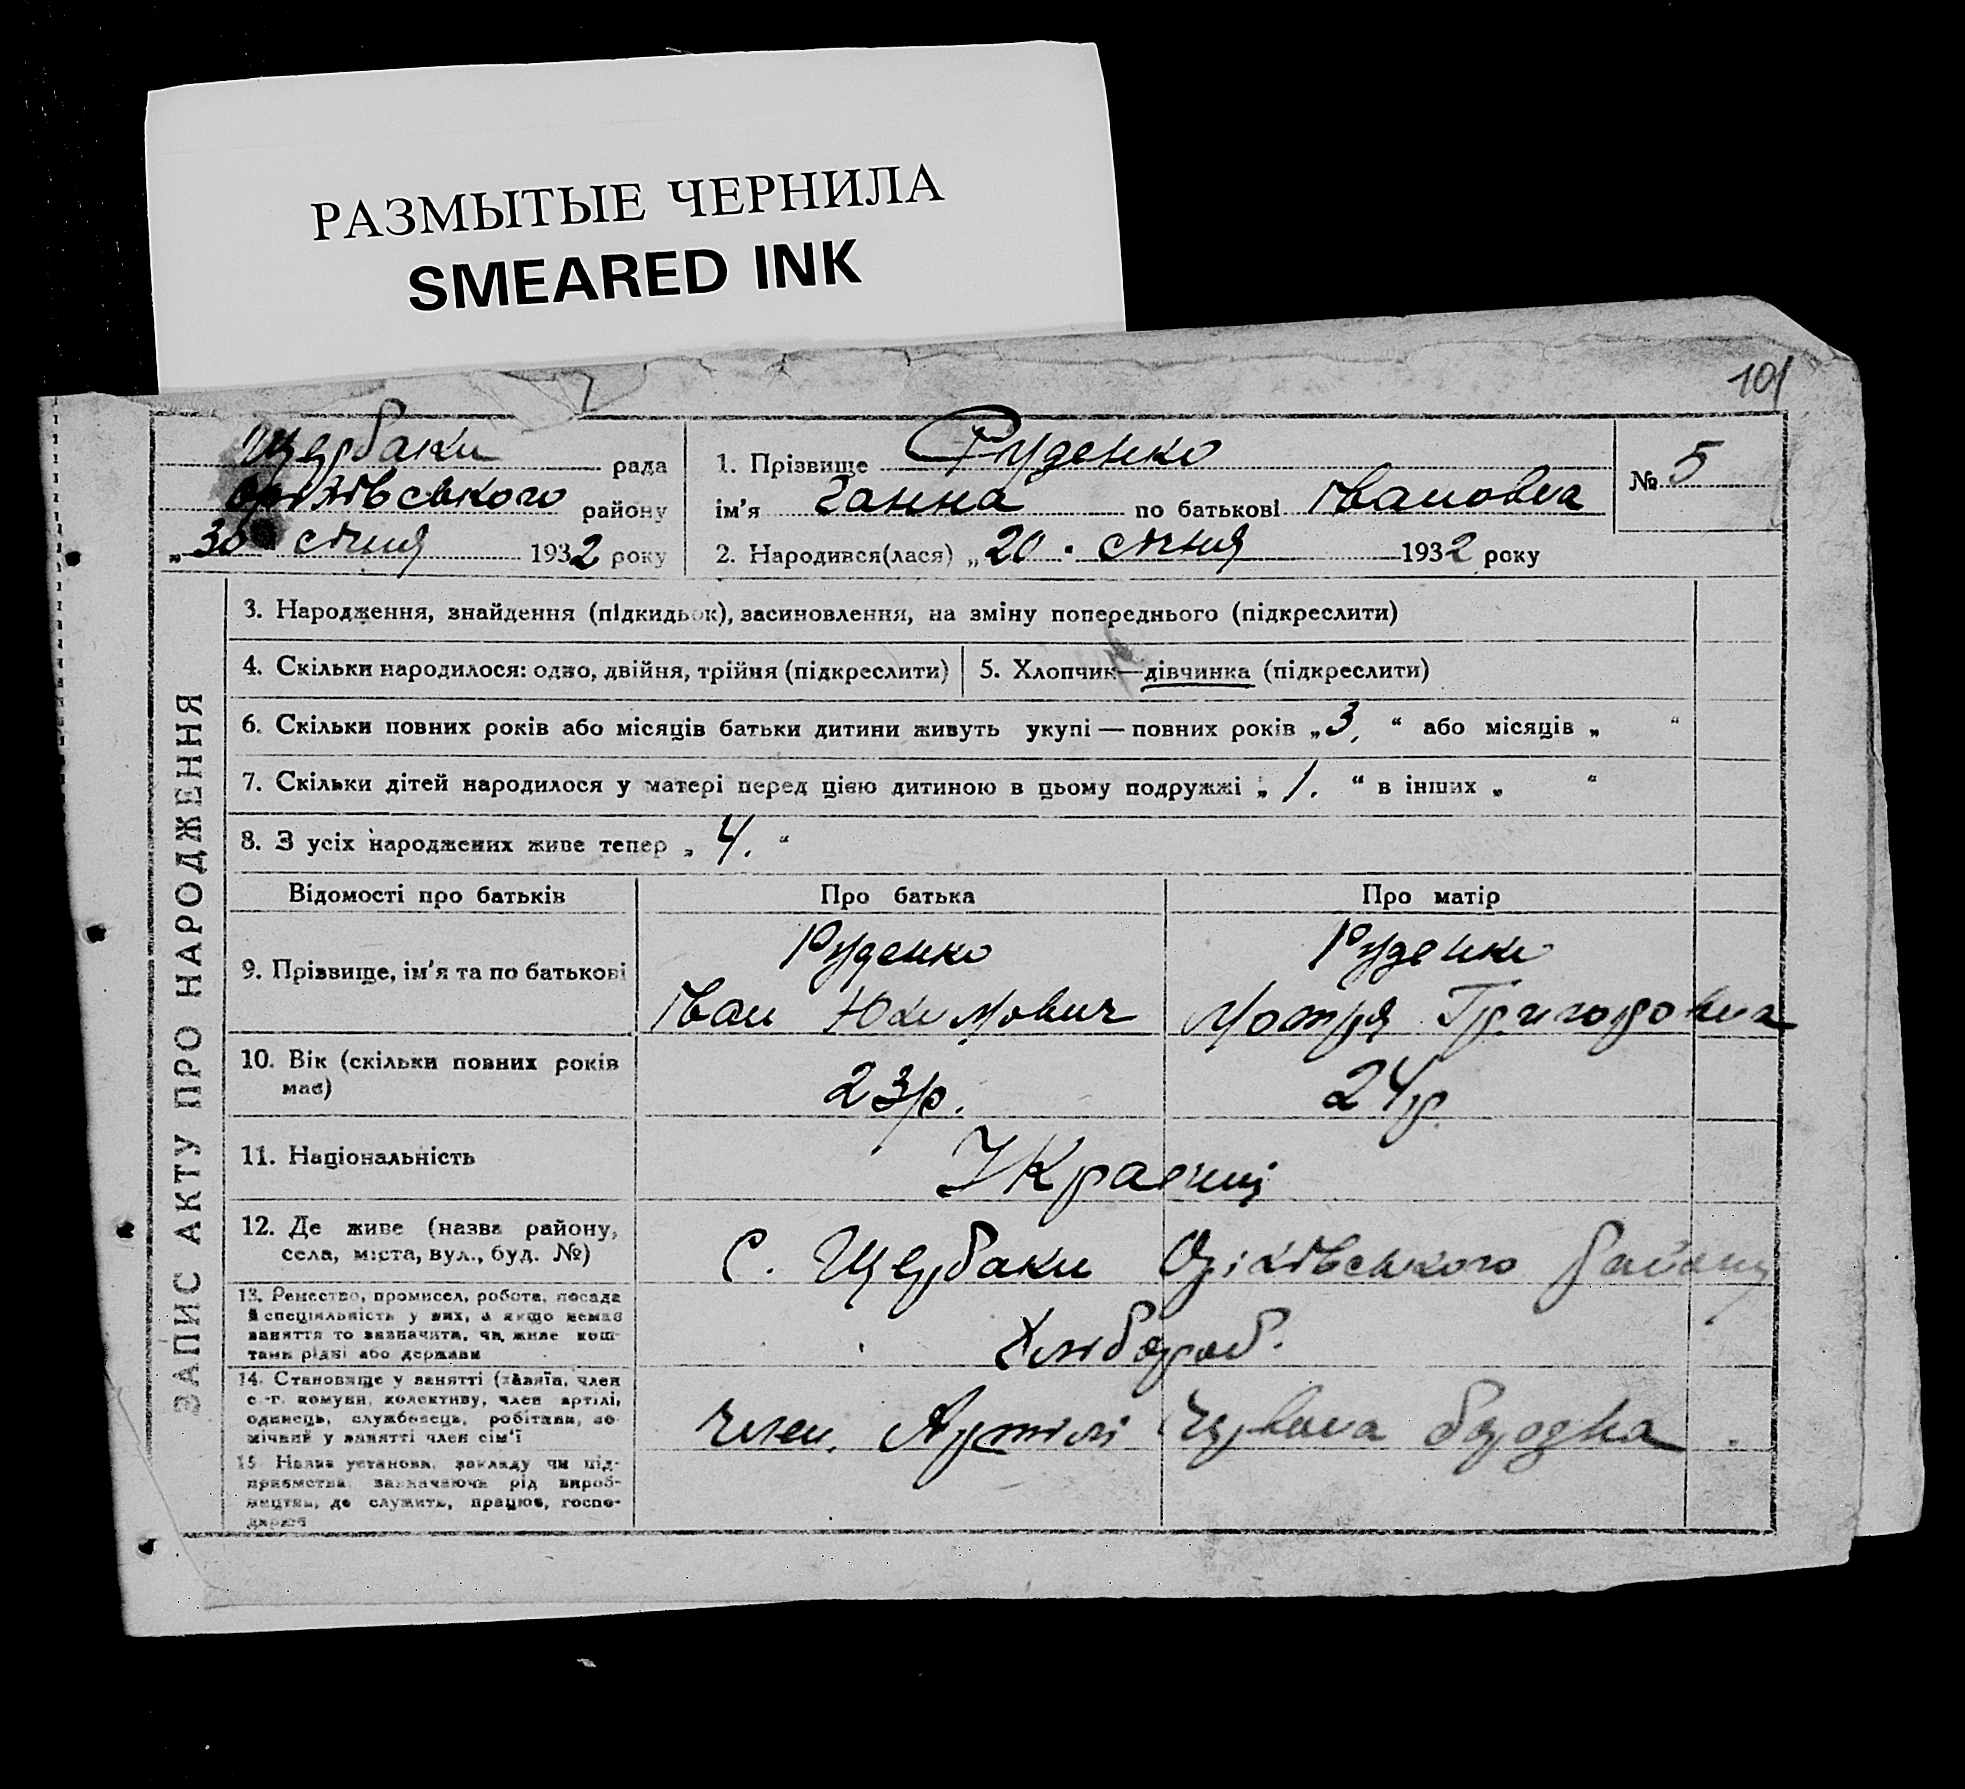 РАЗМЫТЫЕ ЧЕРНИЛА
SMEARED INK
101
Щербаки рада
Оріхівського району
„30" січня 1932 року
1. Прізвище Руденко
ім'я Ганна по батькові Івановна
№ 5
2. Народився(лася) „20. січня 1932 року
ЗАПИС АКТУ ПРО НАРОДЖЕННЯ
3. Народження, знайдення (підкидьок), засиновлення, на зміну попереднього (підкреслити)
4. Скільки народилося: одно, двійня, трійня (підкреслити) 5. Хлопчик—дівчинка (підкреслити)
6. Скільки повних років або місяців батьки дитини живуть укупі — повних років „3." або місяців „ "
7. Скільки дітей народилося у матері перед цією дитиною в цьому подружжі „1." в інших „ "
8. З усіх народжених живе тепер „4."
Відомості про батьків Про батька Про матір
9. Прізвище, ім'я та по батькові
Руденко Руденко
Іван Юхимович Мотря Григоровна
10. Вік (скільки повних років має)
23р. 24р.
11. Національність
Українці
12. Де живе (назва району,
села, міста, вул., буд. №)
С. Щербаки Оріхівського району
13. Ремество, промисел, робота, посада
й спеціяльність у них, а якщо немає
заняття то зазначити, чи живе кош-
тами рідні або держави
Хлібороб.
14. Становище у занятті (хазяїн, член
с.-г. комуни, колективу, член артілі,
одинець, службовець, робітник, по-
мічний у занятті член сім'ї
член. Артілі
15. Назва установи, закладу чи під-
приємства, зазначаючи рід вироб-
ництва, де служить, працює, госпо-
дарює